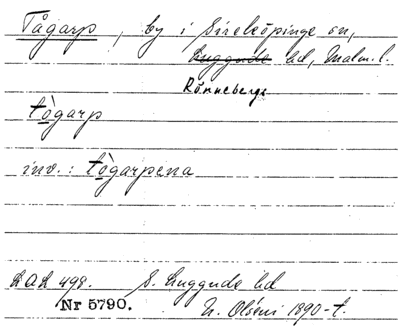 Tågarp, by i Sireköpinge sn,
Luggude hd, Malm. l.
Rönnebergs
tògarp
inv.: tògarpena
LAL 498. S. Luggude hd
Nr 5790. N. Olséni 1890-t.